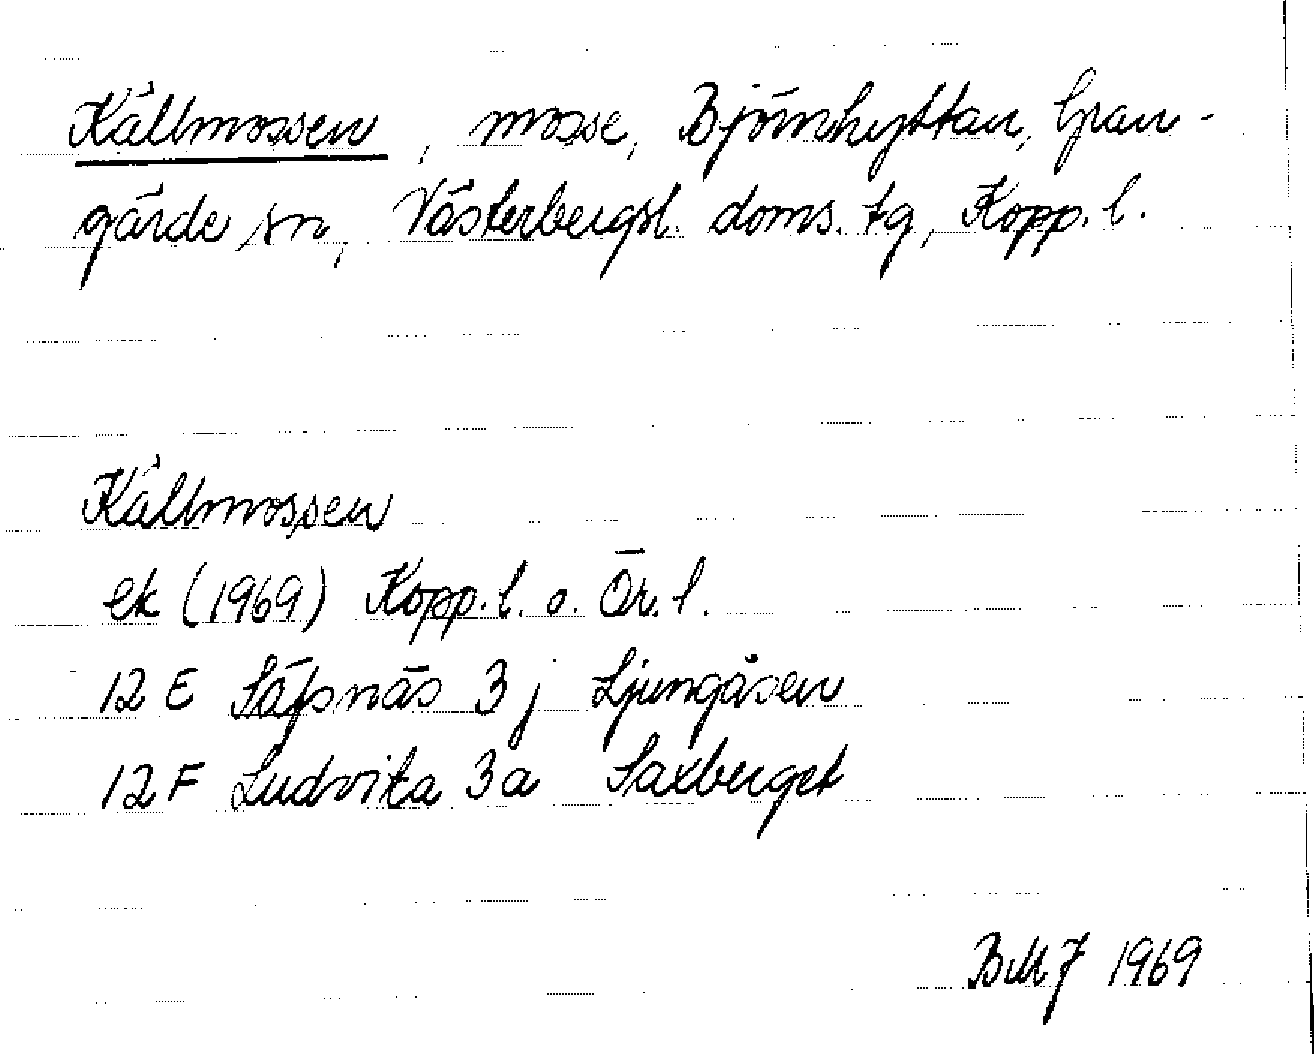 Källmossen, mosse, Björnhyttan, Gran-
gärde sn, Västerbergsl. doms. tg, Kopp. l.
Källmossen
ek (1969) Kopp. l. o. Ör. l.
12 E Säfsnäs 3 j Ljungåsen
12 F Ludvika 3a Saxberget
BMJ 1969